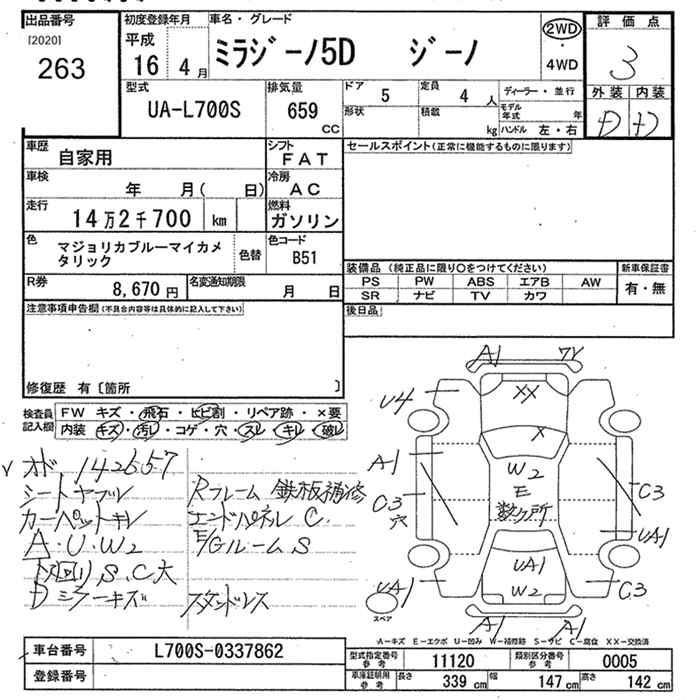 出品番号
[2020]
263
初度登録年月
平成
16 4月
車名・グレード
ミラジーノ5D ジーノ
2WD
・
4WD
評価点
3
外装 内装
D D
型式
UA-L700S
排気量
659 cc
ドア
5
定員
4 人
形状
積載
kg
ディーラー・並行
モデル年式 年
ハンドル 左・右
車歴
自家用
シフト
FAT
車検
年 月( 日)
冷房
AC
走行
14万2千700 km
燃料
ガソリン
色
マジョリカブルーマイカメタリック
色替
色コード
B51
R券
8,670 円
名変通知期限
月 日
セールスポイント(正常に機能するものに限ります)
装備品(純正品に限り○をつけてください)
新車保証書
PS PW ABS エアB AW
SR ナビ TV カワ
有・無
後日品
注意事項申告欄(不具合内容等は具体的に記入して下さい)
修復歴 有〔箇所 〕
検査員記入欄
FW キズ・飛石・ヒビ割・リペア跡・×要
内装 キズ・汚レ・コゲ・穴・スレ・キレ・破レ
オド 142557
シートヤブレ
カーペットキレ
A.U.W2
下回り S.C大
Dミラーキズ
Rフレーム 鉄板補修
エンドパネル C.
E/Gルーム S
スタッドレス
A1
U4
XX
X
A1
W2
E
数ヶ所
C3
穴
C3
UA1
UA1
UA1
W2
C3
A1 A1
スペア
A-キズ E-エクボ U-凹み W-補修跡 S-サビ C-腐食 XX-交換済
車台番号
L700S-0337862
登録番号
型式指定番号
参考
11120
類別区分番号
参考
0005
車庫証明用
参考
長さ 339 cm 幅 147 cm 高さ 142 cm